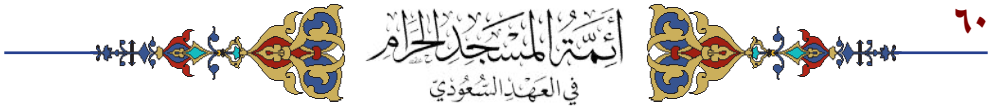 ٦٠
أَئِمَّةُ المَسْجِدِ الحَرَامِ
في العَهْدِ السُّعُودِيّ